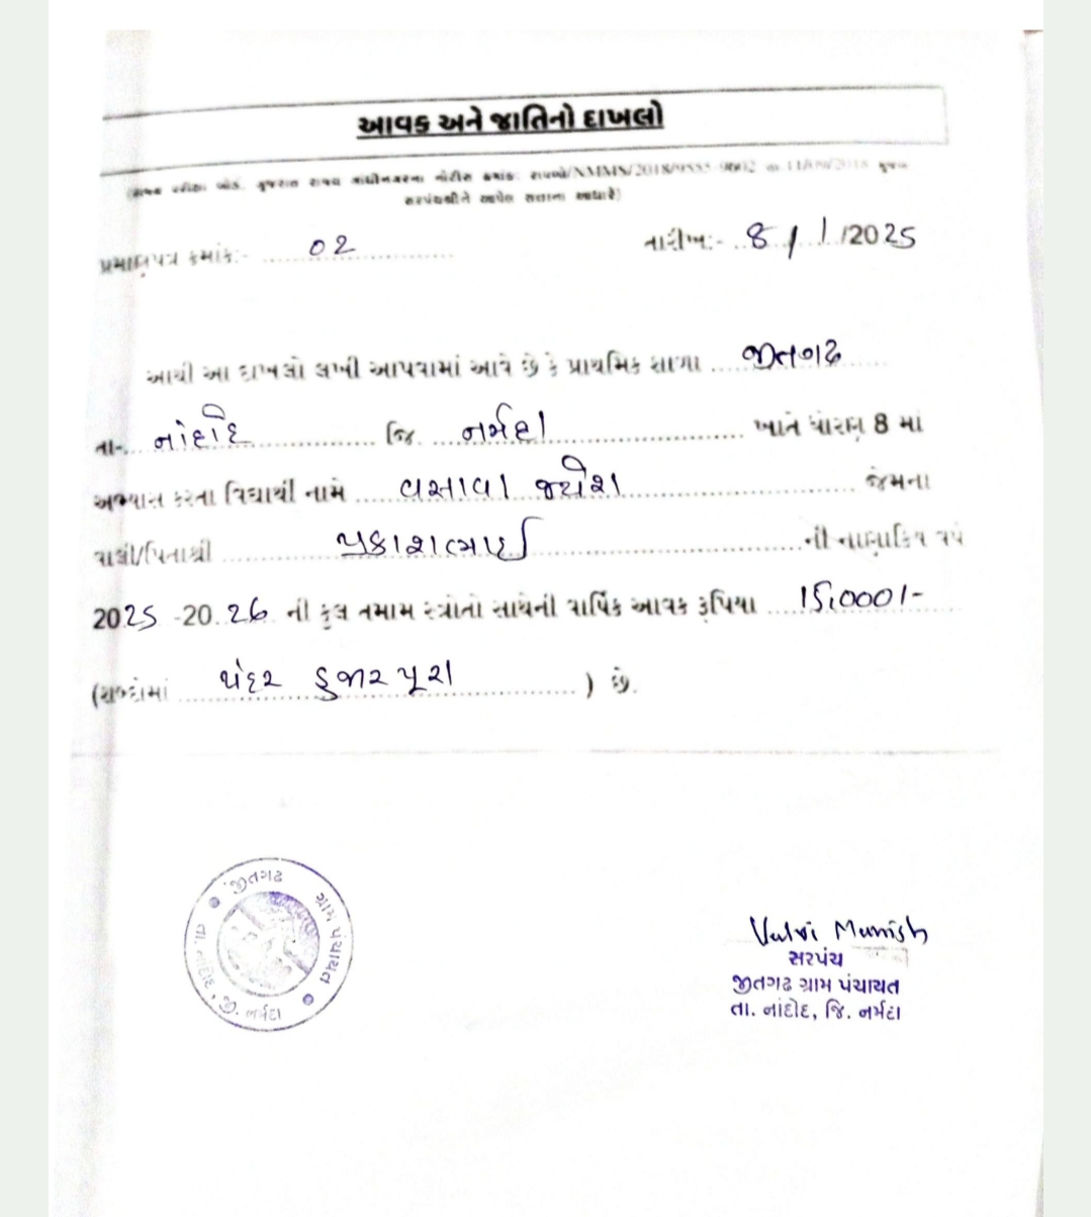 આવક અને જાતિનો દાખલો
(રાજ્ય પરીક્ષા બોર્ડ, ગુજરાત રાજ્ય ગાંધીનગરના નોટીસ ક્રમાંક: રાપબો/NMMS/2018/9602 તા 11/09/2018 મુજબ
સરપંચશ્રીને આપેલ સત્તાના આધારે)
પ્રમાણપત્ર ક્રમાંક:- 02
તારીખ:- 8/1/2025
આથી આ દાખલો લખી આપવામાં આવે છે કે પ્રાથમિક શાળા જીતગઢ
તા-. નાંદોદ જિ નર્મદા ખાતે ધોરણ 8 માં
અભ્યાસ કરતા વિદ્યાર્થી નામે વસાવા જયેશ જેમના
વાલી/પિતાશ્રી પ્રકાશભાઈ ની નાણાકિય વર્ષ
2025 -20.26 ની કુલ તમામ સ્ત્રોતો સાથેની વાર્ષિક આવક રૂપિયા 15,000/-
(શબ્દોમાં પંદર હજાર પૂરા ) છે.
જીતગઢ ગ્રામ પંચાયત
તા. નાંદોદ, જી. નર્મદા
Valvi Munish
સરપંચ
જીતગઢ ગ્રામ પંચાયત
તા. નાંદોદ, જિ. નર્મદા